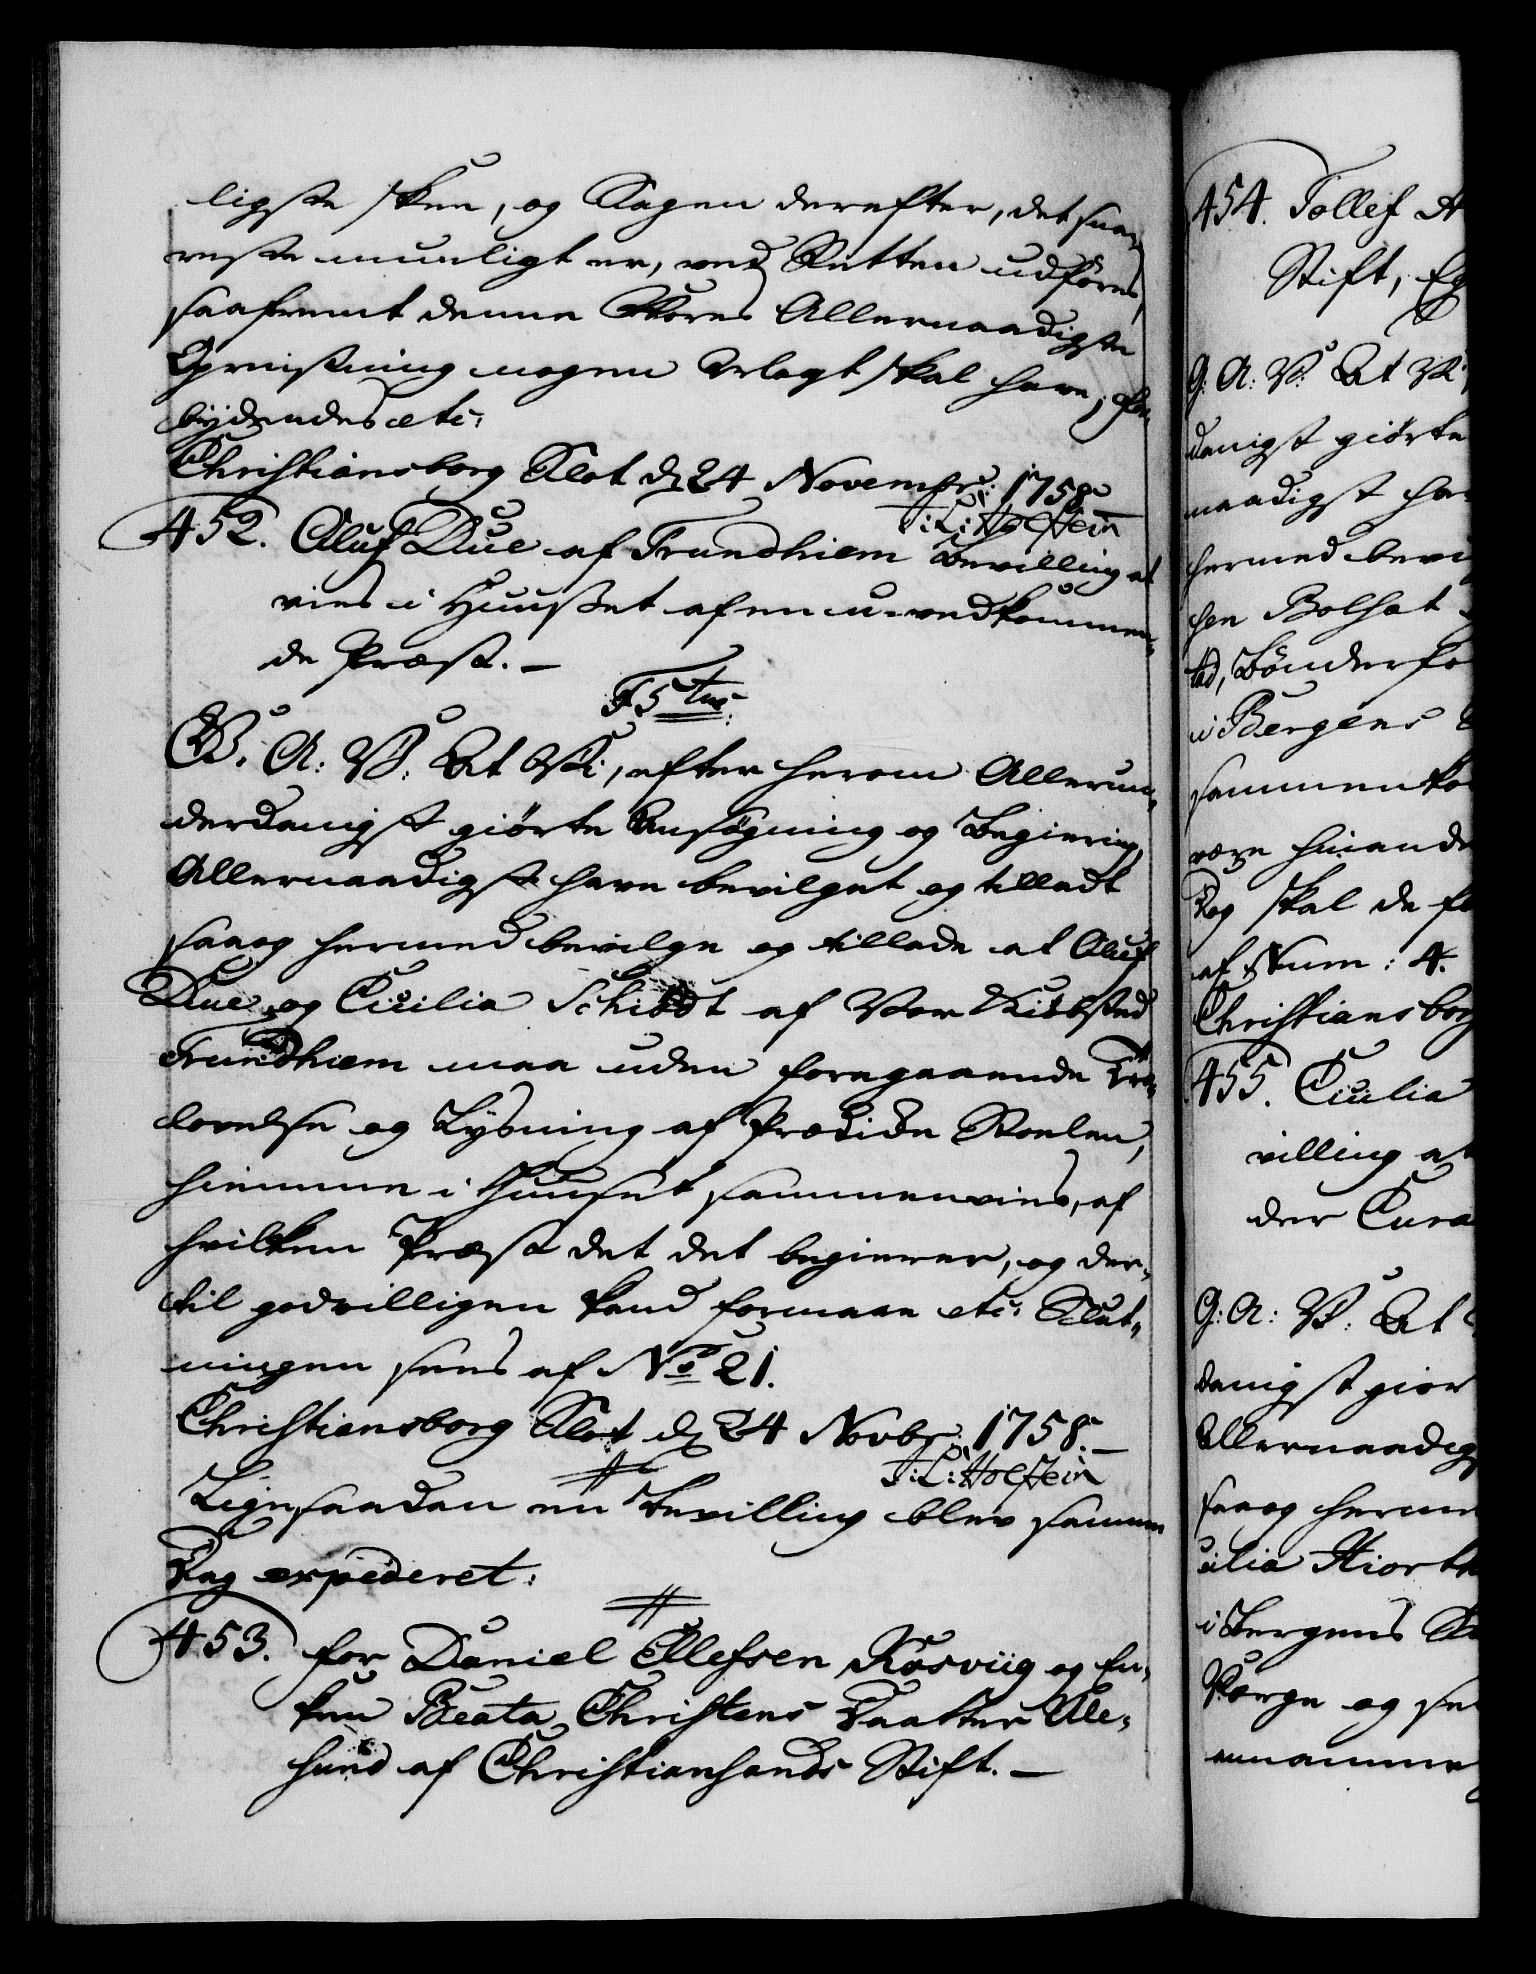 ligste skeer, og Sagen derefter, det snar,
reste mueligt er, ved Retten udføres,
saafremt denne Vores Allernaadigste
Opreisning nogen Virkning skal have, For,
bydendes etc:
Christiansborg Slot d. 24 Novembr: 1758.
J: L: Holstein
452. Oluf Due af Trundhiem Bevilling at
vies i Huuset af en u-vedkommen,
de Præst. –
F 5tus:
G. A: V: At Vi, efter herom Allerun,
derdanigst giorte Ansøgning og Begiering
Allernaadigst have bevilget og tilladt
saa og hermed bevilge og tillade at Oluf
Due og Cicilia Schiødt af Vor Kiøbsted
Trundhiem maa uden foregaaende Troe,
lovelse og Lysning af Prædike Stoelen,
hiemme i Huuset sammenvies, af
hvilken Præst det det begierer, og der,
til godvilligen kand formaae etc: Slut,
ningen sees af No 21.
Christiansborg Slot d. 24 Novbr: 1758. –
J: L: Holstein
Lige saadan en Bevilling blev samme
Dag expederet:
453. for Daniel Ellefsen Rosviig og En,
ken Beata Christens Daatter Ale,
sund af Christiansands Stift. –
454. Tollef
Stift,
G: A: V: At Vi
danigst giorte
naadigst ha
hermed bevi
hen Bolsat
sted, Bønderfo
i Bergens
sammenko
være hinande
Dog skal de
af Num: 4.
Christiansborg
455. Cicilia
villing at
der Cura
G: A: V: At
danigst gior
Allernaadigs
saa og herme
cilia Hiorth
i Bergens
Værge og
annamme